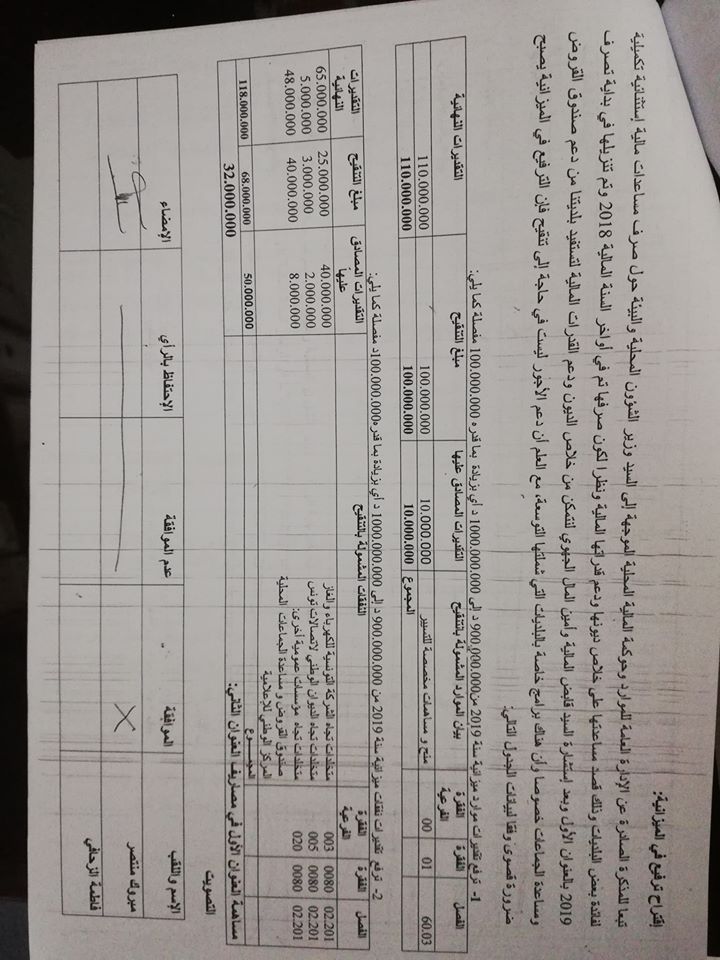 إقتراح ترفيع في الميزانية:
تبعا للمذكرة الصادرة عن الإدارة العامة للموارد وحوكمة المالية المحلية الموجهة إلى السيد وزير الشؤون المحلية والبيئة حول صرف مساعدات مالية إستثنائية تكميلية
لفائدة بعض البلديات وذلك قصد مساعدتها على خلاص ديونها ودعم قدراتها المالية ونظرا لكون صرفها تم في أواخر السنة المالية 2018 وتم تنزيلها في بداية تصرف
2019 بالعنوان الأول وبعد إستشارة السيد قابض المالية وأمين المال الجهوي لنتمكن من خلاص الديون ودعم القدرات المالية لتستفيد بلديتنا من دعم صندوق القروض
ومساعدة الجماعات خصوصا وأن هناك برامج خاصة بالبلديات التي شملتها التوسعة، مع العلم أن دعم الأجور ليست في حاجة إلى تنقيح فإن الترفيع في الميزانية يصبح
ضرورة قصوى وفقا لبيانات الجدول التالي:
1- ترفع تقديرات موارد ميزانية سنة 2019 من 900.000.000 د إلى 1000.000.000 د أي بزيادة بما قدره 100.000.000 مفصلة كما يلي:
الفصل الفقرة الفقرة الفرعية بيان الموارد المشمولة بالتنقيح التقديرات المصادق عليها مبلغ التنقيح التقديرات النهائية
60.03 01 00 منح و مساهمات مخصصة للتسيير 10.000.000 100.000.000 110.000.000
المجموع 10.000.000 100.000.000 110.000.000
2- ترفع تقديرات نفقات ميزانية سنة 2019 من 900.000.000 د إلى 1000.000.000 د أي بزيادة بما قدره 100.000.000د مفصلة كما يلي:
الفصل الفقرة الفقرة الفرعية النفقات المشمولة بالتنقيح التقديرات المصادق عليها مبلغ التنقيح التقديرات النهائية
02.201 0080 003 متخلدات تجاه الشركة التونسية للكهرباء والغاز 40.000.000 25.000.000 65.000.000
02.201 0080 005 متخلدات تجاه الديوان الوطني لاتصالات تونس 2.000.000 3.000.000 5.000.000
02.201 0080 020 متخلدات تجاه مؤسسات عمومية أخرى: 8.000.000 40.000.000 48.000.000
صندوق القروض و مساعدة الجماعات المحلية
المركز الوطني للإعلامية
المجمـــوع 50.000.000 68.000.000 118.000.000
مساهمة العنوان الأول في مصاريف العنوان الثاني: 32.000.000
التصويت
الإسم واللقب الموافقة عدم الموافقة الإحتفاظ بالرأي الإمضاء
مبروك منتصر X
فاطمة الزحافي